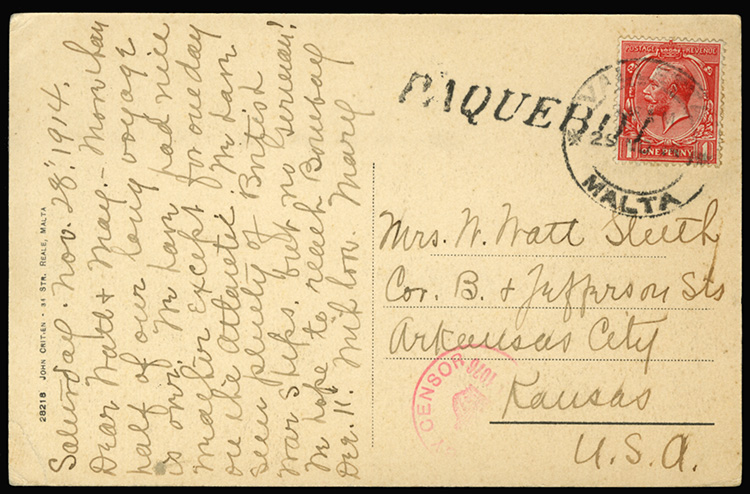 Saturday. Nov. 28. 1914.
Dear Watt & May. - More than
half of our long voyage
is over. We have had nice
weather except for one day
on the Atlantic. We have
seen plenty of British
war ships. but no German!
We hope to reach Bombay
Dec. 11. With love. Mary
28218 JOHN CRITIEN - 34 STR. REALE, MALTA
PAQUEBOT
POSTAGE REVENUE
ONE PENNY
VALLETTA
29
MALTA
Mrs. W. Watt Sleeth
Cor. B. & Jefferson Sts
Arkansas City
Kansas
U.S.A.
CENSOR